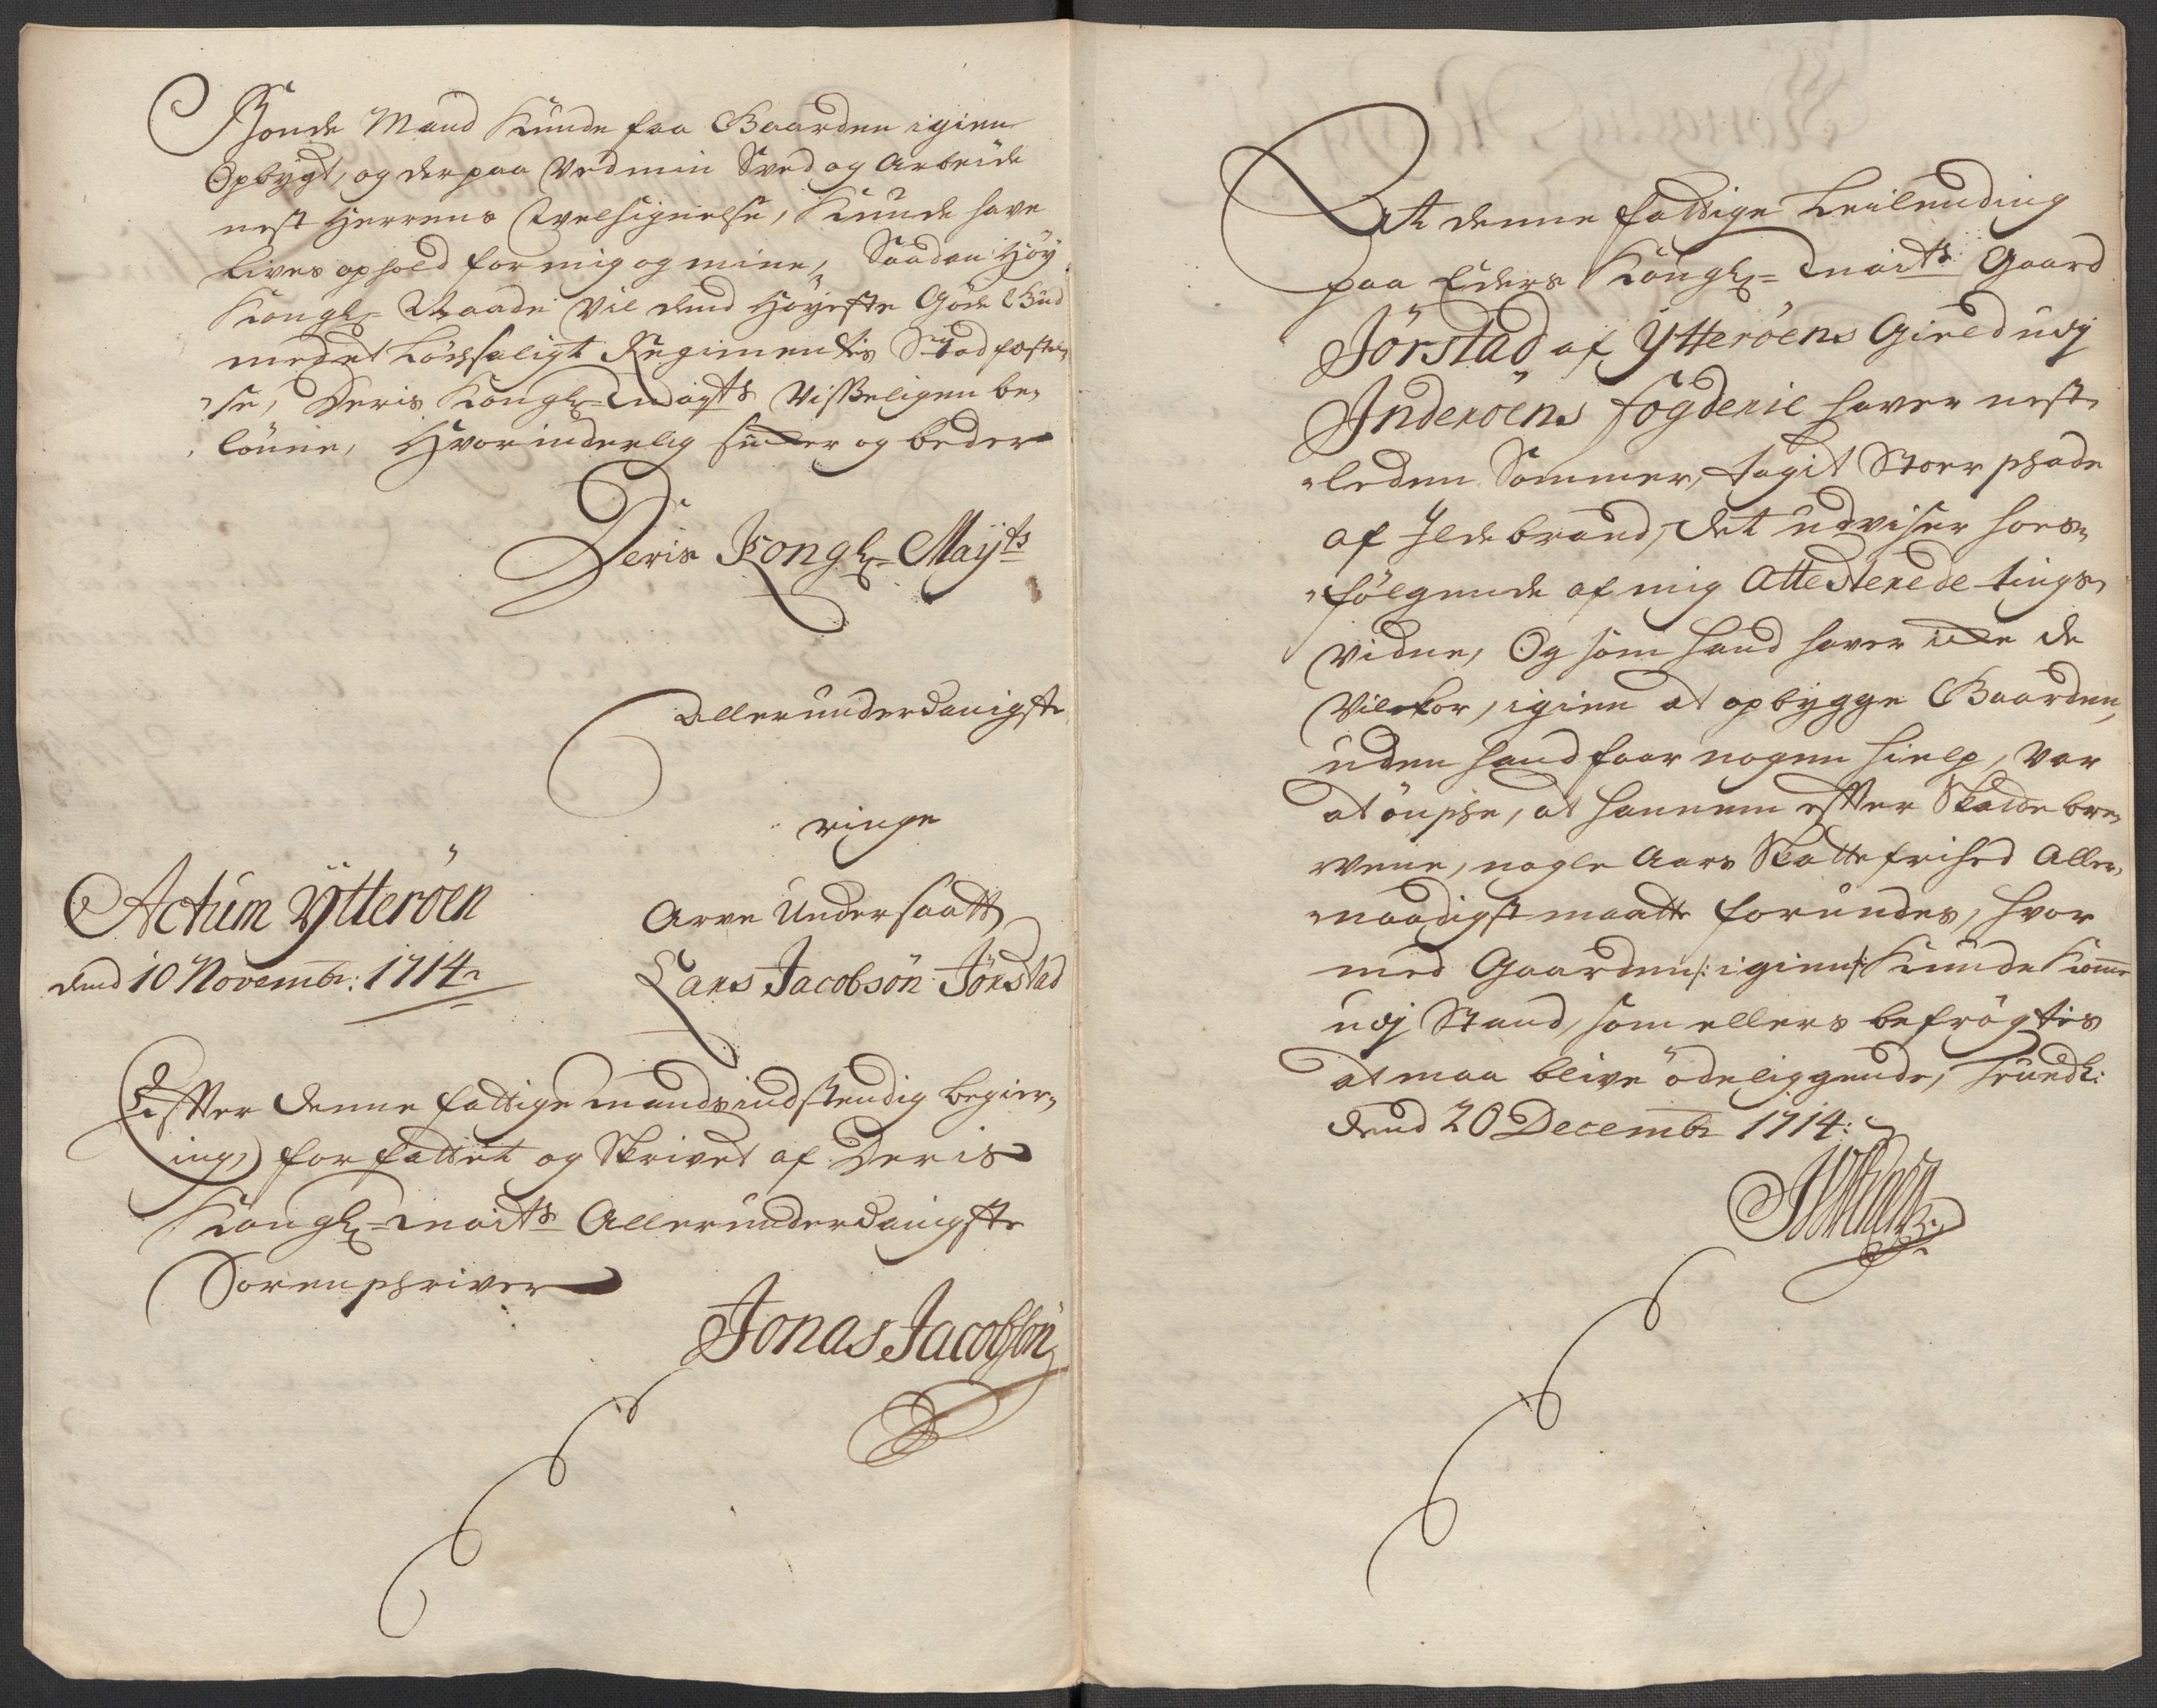 Bonde Mand Kunde faa Gaarden igien
Opbygt, og der paa Ved min Sved og Arbeide
nest Herrens Welsignelse, Kunde have
Lives ophold for mig og mine, Saadan Höy
Kongl= Naade Vil dend Höyeste Gode Gud
med et Löcksaligt Regimentis Stadfæstel,
se, Deris Kongl= Mayts Visseligen be,
lönne, Hvor inderlig sucker og beder
Deris Kongl= Mayts
Allerunderdanigste
ringe
Actum Ytteröen
Arve Undersaatt
dend 10 Novembr: 1714
Lars Jacobsön Jörstad
Efter denne fattige mands indstendig begier,
ing, forfattet og Skrivet af Deris
Kongl= Maits Allerunderdanigste
Sorenschriver
Jonas Jacobsön
At denne fattige Leilending
paa Eders Kongl= Maits Gaard
Jörstad af Ytteröens Gield udj
Inderöens fogderie haver nest,
leden Sommer, tagit Stoer schade
af Ildebrand, det udviser hoes,
fölgende af mig Attesterede tings,
vidne, Og som hand haver icke de
Vilckor, igien at opbygge Gaarden,
uden hand faar nogen hielp, Var
at önsche, at hannem efter Skatde bre,
vene, nogle Aars Skatte frihed Aller,
naadigst maatte forundes, hvor
med Gaarden /: igien :/ Kunde Komme
udj Stand, som ellers befrögtis
at maa blive öde liggende, Trundh:
dend 20 Decembr 1714: